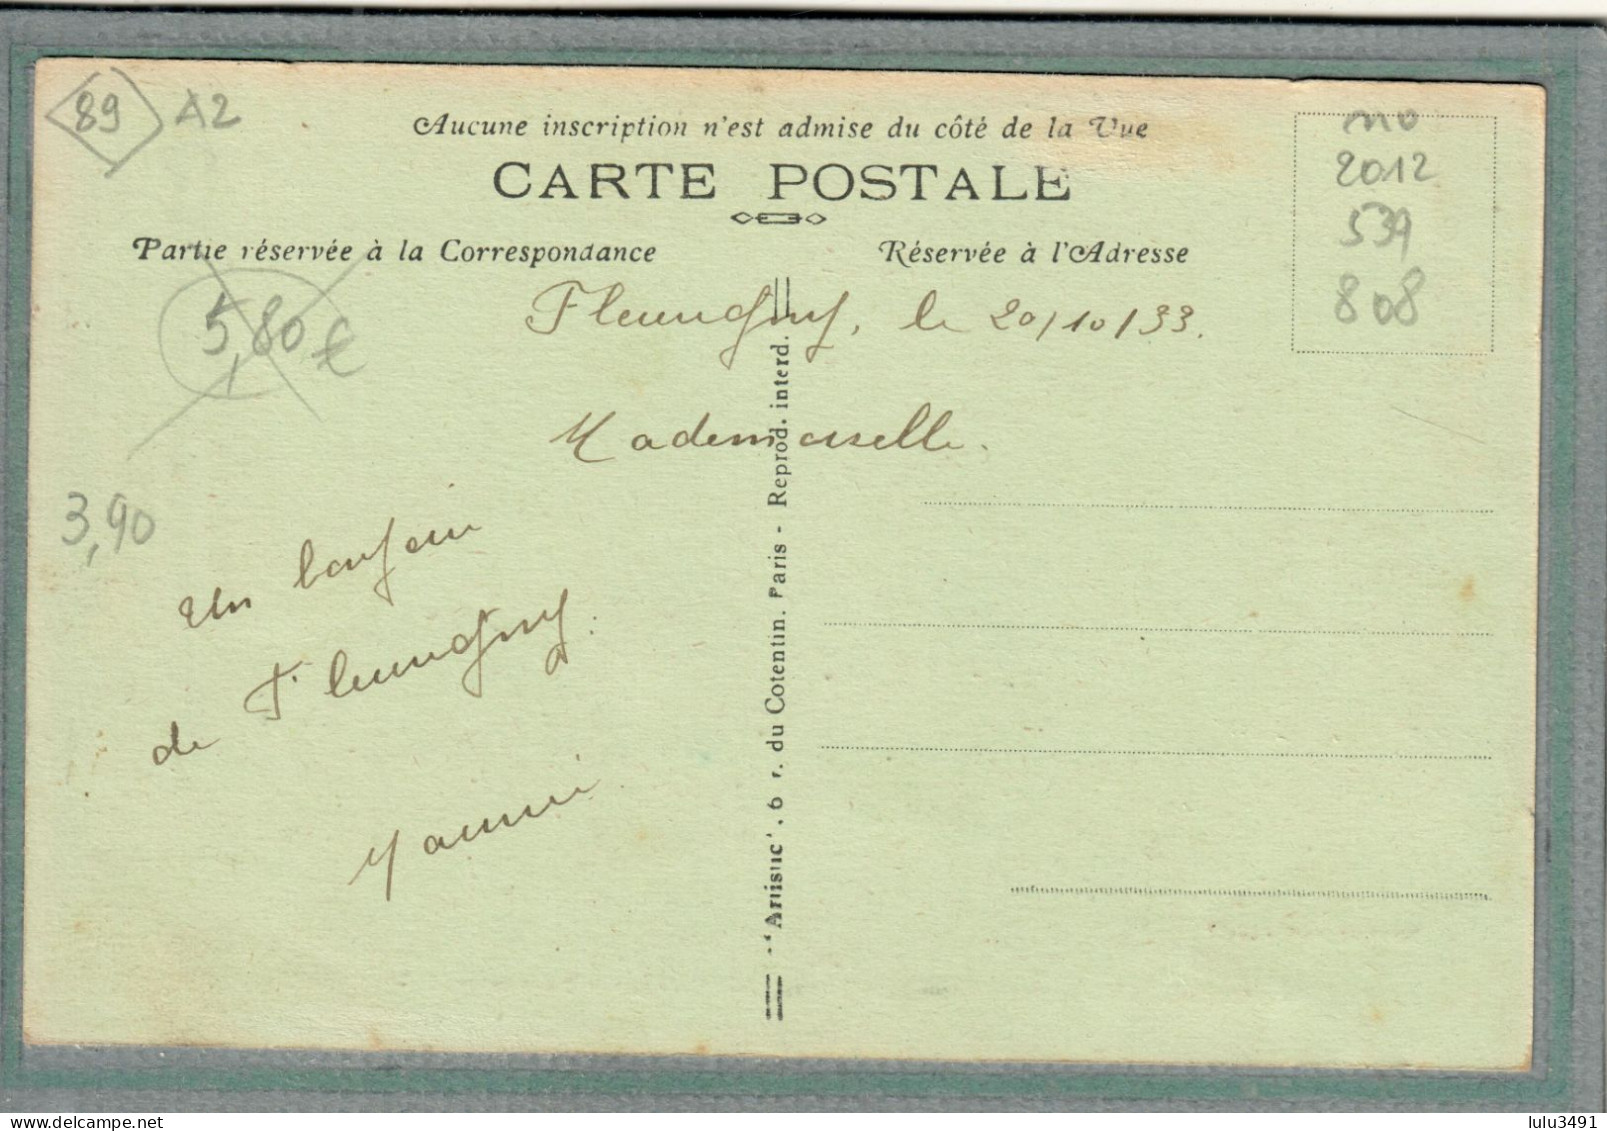 89 A2
Aucune inscription n'est admise du côté de la Vue
CARTE POSTALE
Partie réservée à la Correspondance
Réservée à l'Adresse
no
2012
539
808
5,80 €
3,90
Fleurigny, le 20/10/33.
Mademoiselle.
Un bonjour
de Fleurigny.
"Artistic", 6 r. du Cotentin. Paris - Reprod. interd.
www.delcampe.net
lulu3491